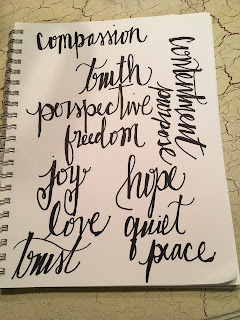 compassion
truth
perspective
freedom
joy hope
love quiet
trust peace
contentment
purpose